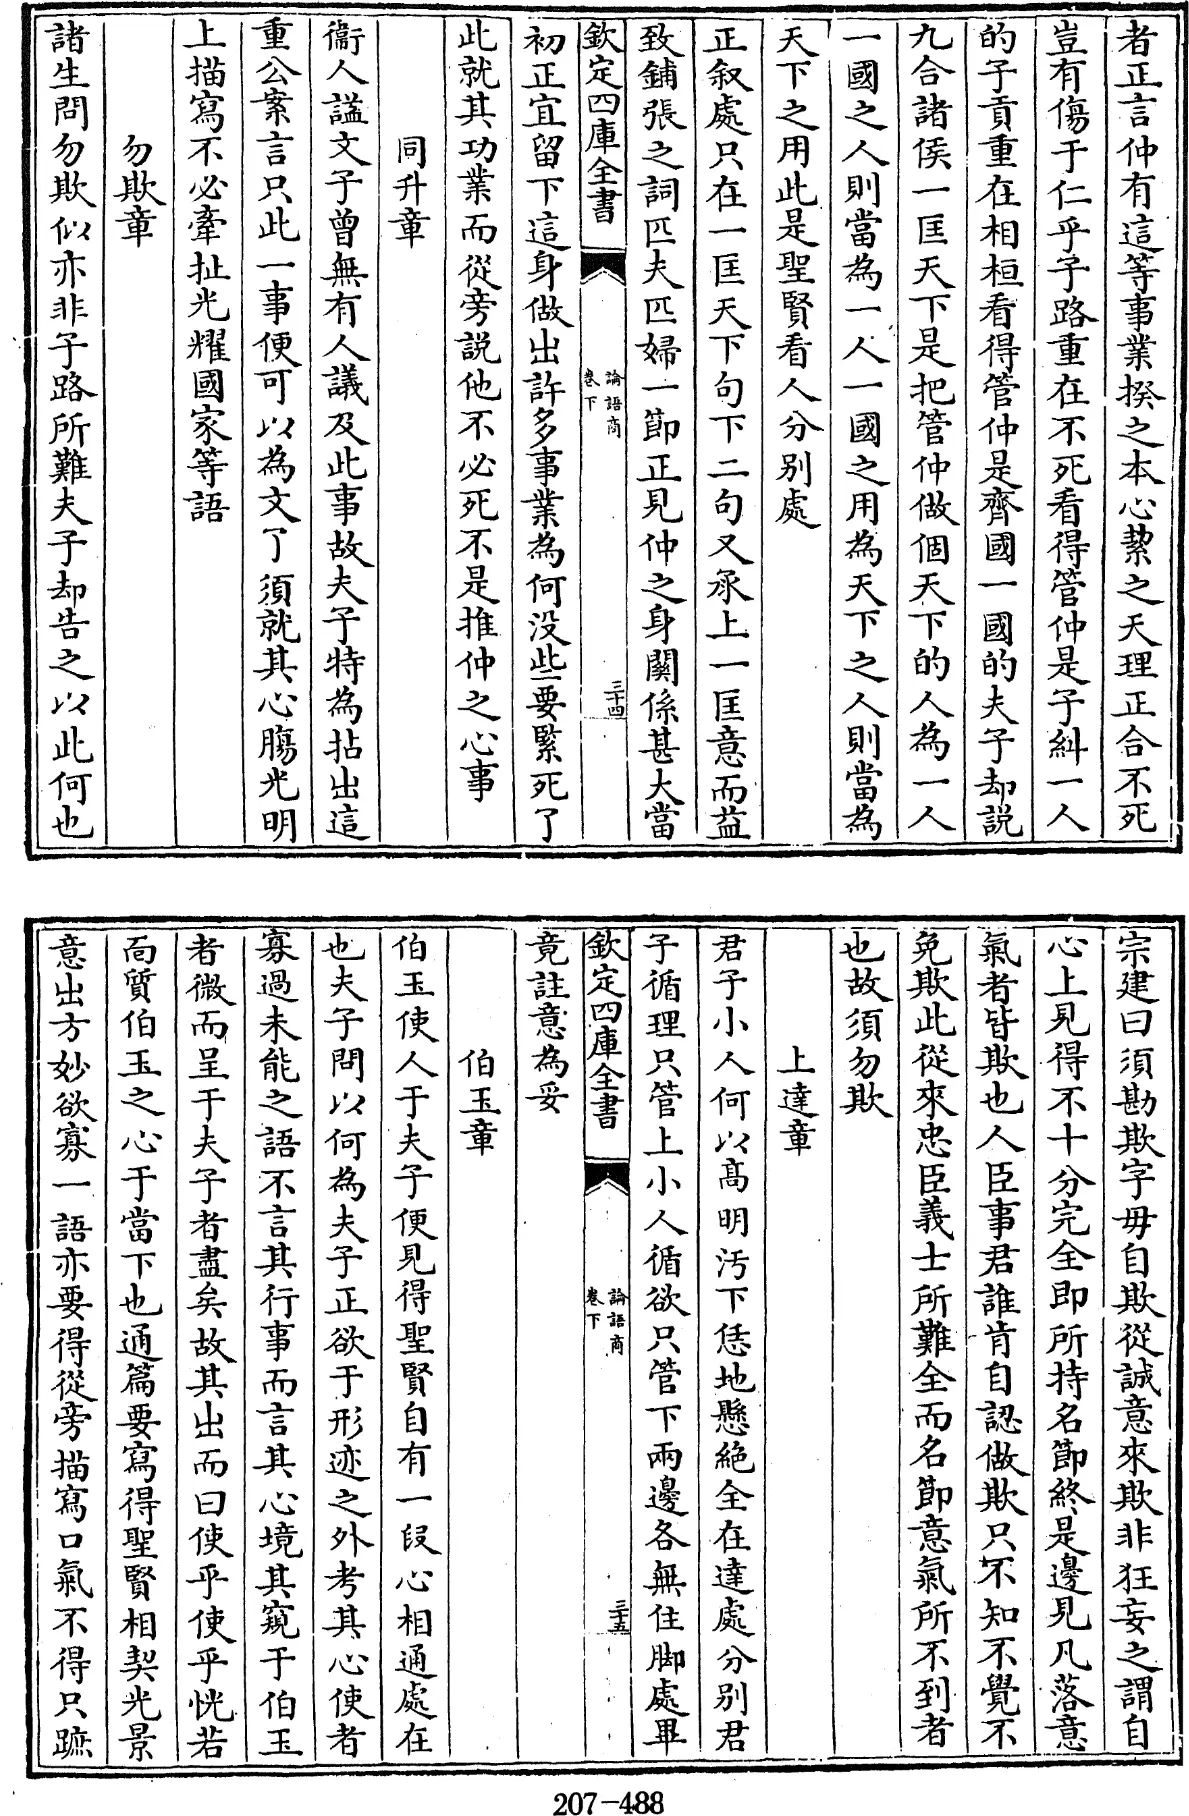 者正言仲有這等事業揆之本心絜之天理正合不死
豈有傷于仁乎子路重在不死看得管仲是子糾一人
的子貢重在相桓看得管仲是齊國一國的夫子却説
九合諸侯一匡天下是把管仲做個天下的人為一人
一國之人則當為一人一國之用為天下之人則當為
天下之用此是聖賢看人分别處
正叙處只在一匡天下句下二句又承上一匡意而益
致鋪張之詞匹夫匹婦一節正見仲之身關係甚大當
欽定四庫全書
論語商
卷下
三十四
初正宜留下這身做出許多事業為何没些要緊死了
此就其功業而從旁説他不必死不是推仲之心事
同升章
衞人諡文子曾無有人議及此事故夫子特為拈出這
重公案言只此一事便可以為文了須就其心膓光明
上描寫不必牽扯光耀國家等語
勿欺章
諸生問勿欺似亦非子路所難夫子却告之以此何也
宗建曰須勘欺字毋自欺從誠意來欺非狂妄之謂自
心上見得不十分完全即所持名節終是邊見凡落意
氣者皆欺也人臣事君誰肯自認做欺只不知不覺不
免欺此從來忠臣義士所難全而名節意氣所不到者
也故須勿欺
上達章
君子小人何以髙明汚下恁地懸絶全在達處分别君
子循理只管上小人循欲只管下兩邊各無住脚處畢
欽定四庫全書
論語商
卷下
三十五
竟註意為妥
伯玉章
伯玉使人于夫子便見得聖賢自有一段心相通處在
也夫子問以何為夫子正欲于形迹之外考其心使者
寡過未能之語不言其行事而言其心境其窺于伯玉
者微而呈于夫子者盡矣故其出而曰使乎使乎恍若
靣質伯玉之心于當下也通篇要寫得聖賢相契光景
意出方妙欲寡一語亦要得從旁描寫口氣不得只蹠
207-488